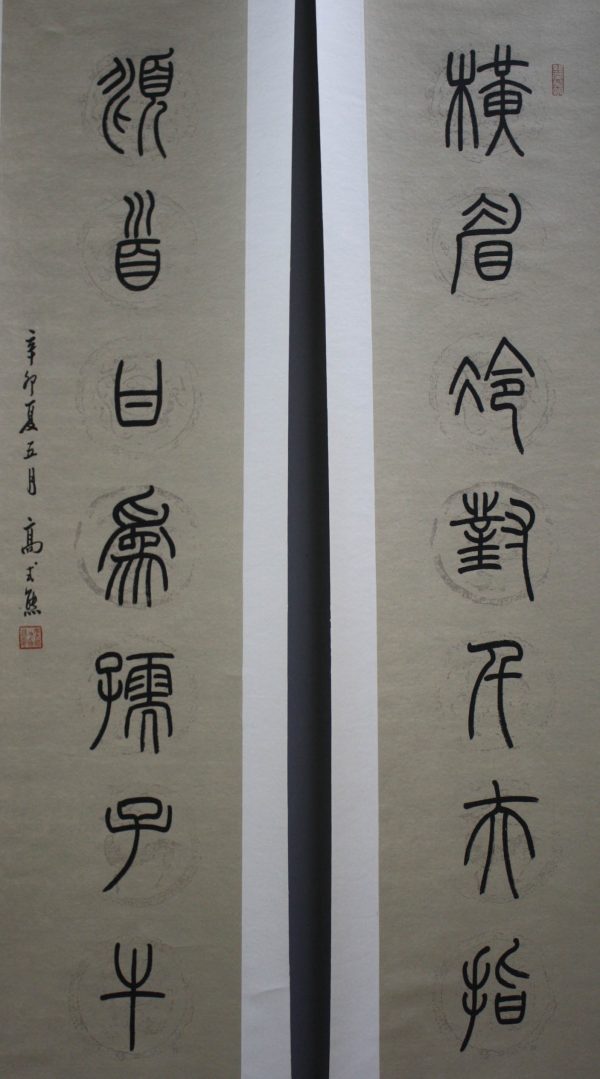 橫眉冷對千夫指
頫首甘爲孺子牛
辛卯夏五月 高式熊